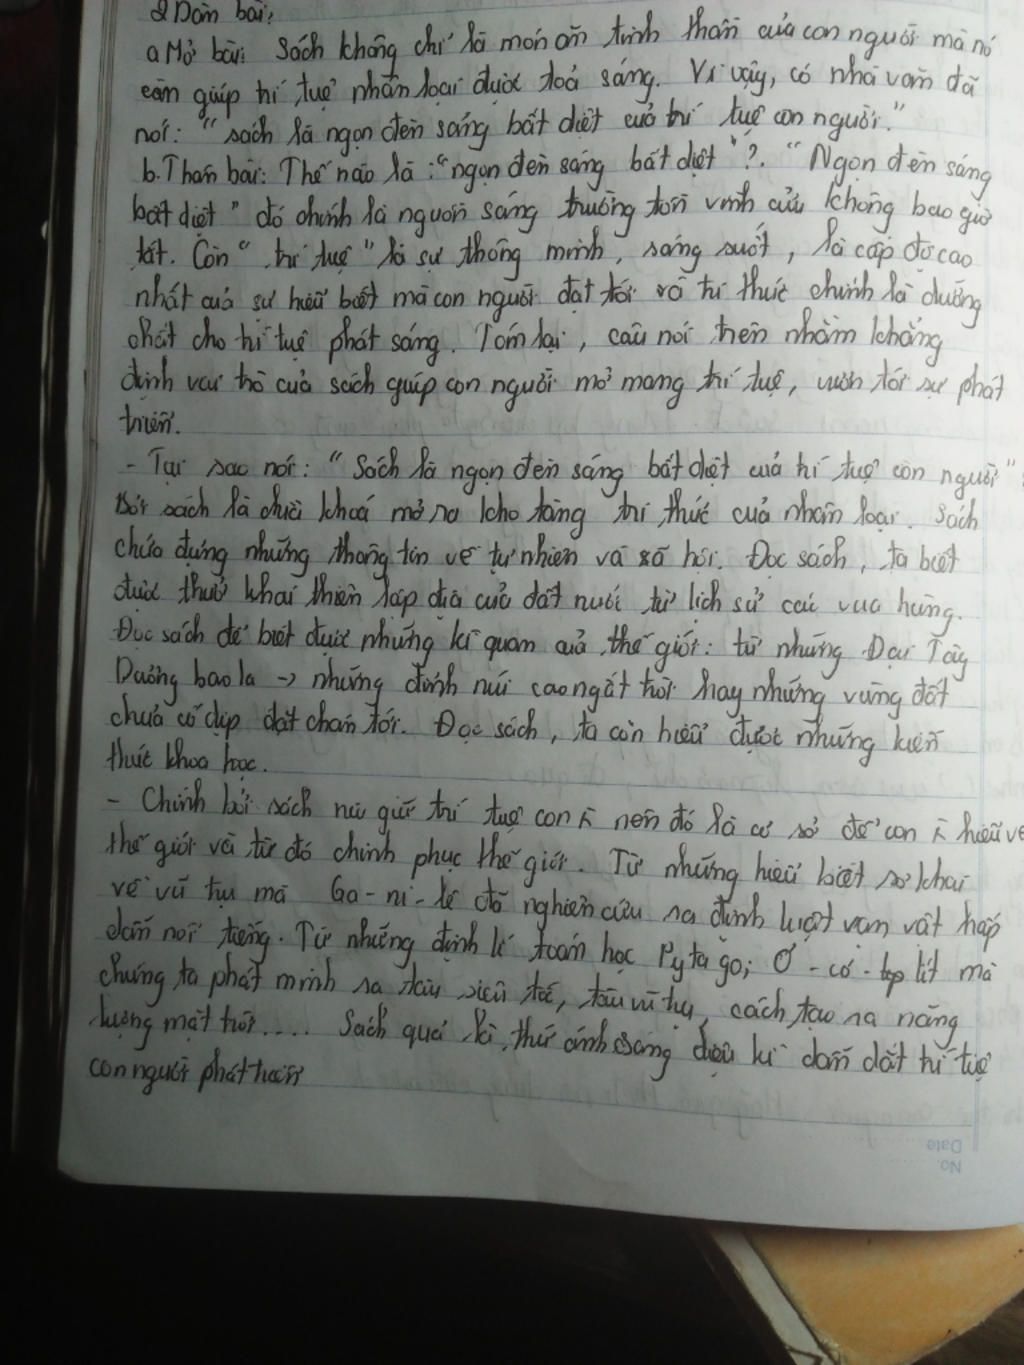 2 Dàn bài:
a Mở bài: Sách không chỉ là món ăn tinh thần của con người mà nó
còn giúp trí tuệ nhân loại được toả sáng. Vì vậy, có nhà văn đã
nói: "sách là ngọn đèn sáng bất diệt của trí tuệ con người."
b. Thân bài: Thế nào là: "ngọn đèn sáng bất diệt"?. "Ngọn đèn sáng
bất diệt" đó chính là nguồn sáng trường tồn vĩnh cửu không bao giờ
tắt. Còn "trí tuệ" là sự thông minh, sáng suốt, là cấp độ cao
nhất của sự hiểu biết mà con người đạt tới và tri thức chính là dưỡng
chất cho trí tuệ phát sáng. Tóm lại, câu nói trên nhằm khẳng
định vai trò của sách giúp con người mở mang trí tuệ, vươn tới sự phát
triển.
- Tại sao nói: "Sách là ngọn đèn sáng bất diệt của trí tuệ con người"
Bởi sách là chìa khoá mở ra kho tàng tri thức của nhân loại. Sách
chứa đựng những thông tin về tự nhiên và xã hội. Đọc sách, ta biết
được thuở khai thiên lập địa của đất nước từ lịch sử các vua hùng.
Đọc sách để biết được những kì quan của thế giới: từ những Đại Tây
Dương bao la -> những đỉnh núi cao ngất trời hay những vùng đất
chưa có dịp đặt chân tới. Đọc sách, ta còn hiểu được những kiến
thức khoa học.
- Chính bởi sách níu giữ trí tuệ con nên đó là cơ sở để con hiểu về
thế giới và từ đó chinh phục thế giới. Từ những hiểu biết sơ khai
về vũ trụ mà Ga-ni-lê đã nghiên cứu ra định luật vạn vật hấp
dẫn nổi tiếng. Từ những định lí toán học Pytago; Ơ-cơ-lít mà
chúng ta phát minh ra tàu siêu tốc, tàu vũ trụ, cách tạo ra năng
lượng mặt trời.... Sách quả là thứ ánh sáng diệu kì dẫn dắt trí tuệ
con người phát triển
No.
Date